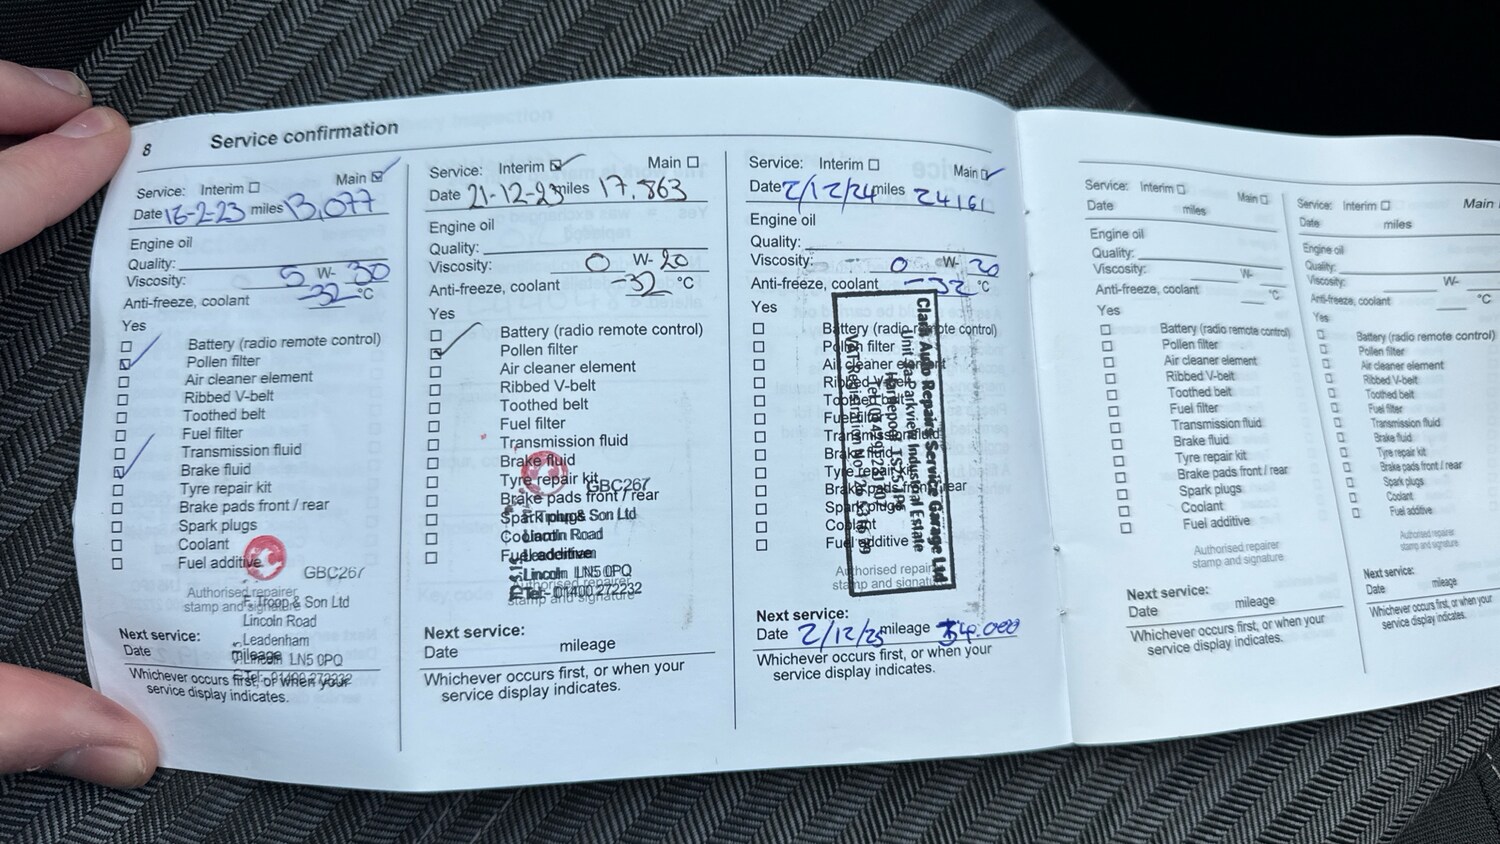 8 Service confirmation
Service: Interim Main
Date 16-2-23 miles 13,077
Engine oil
Quality:
Viscosity: 5 W- 30
Anti-freeze, coolant -32 °C
Yes
Battery (radio remote control)
Pollen filter
Air cleaner element
Ribbed V-belt
Toothed belt
Fuel filter
Transmission fluid
Brake fluid
Tyre repair kit
Brake pads front / rear
Spark plugs
Coolant
Fuel additive
GBC267
Authorised repairer
stamp and signature
F. Troop & Son Ltd
Lincoln Road
Leadenham
Lincoln LN5 0PQ
Tel:- 01400 272232
Next service:
Date mileage
Whichever occurs first, or when your
service display indicates.
Service: Interim Main
Date 21-12-23 miles 17,863
Engine oil
Quality:
Viscosity: 0 W- 20
Anti-freeze, coolant -32 °C
Yes
Battery (radio remote control)
Pollen filter
Air cleaner element
Ribbed V-belt
Toothed belt
Fuel filter
Transmission fluid
Brake fluid
Tyre repair kit
Brake pads front / rear
Spark plugs
Coolant
Fuel additive
GBC267
F. Troop & Son Ltd
Lincoln Road
Leadenham
Lincoln LN5 0PQ
Tel:- 01400 272232
Authorised repairer
stamp and signature
Next service:
Date mileage
Whichever occurs first, or when your
service display indicates.
Service: Interim Main
Date 2/12/24 miles 24161
Engine oil
Quality:
Viscosity: 0 W- 20
Anti-freeze, coolant -32 °C
Yes
Battery (radio remote control)
Pollen filter
Air cleaner element
Ribbed V-belt
Toothed belt
Fuel filter
Transmission fluid
Brake fluid
Tyre repair kit
Brake pads front / rear
Spark plugs
Coolant
Fuel additive
Auto Repairs Service Garage Ltd
Parkview Industrial Estate
Hartlepool TS25
VAT Registration No.
Authorised repairer
stamp and signature
Next service:
Date 2/12/25 mileage 34.000
Whichever occurs first, or when your
service display indicates.
Service: Interim Main
Date miles
Engine oil
Quality:
Viscosity: W-
Anti-freeze, coolant °C
Yes
Battery (radio remote control)
Pollen filter
Air cleaner element
Ribbed V-belt
Toothed belt
Fuel filter
Transmission fluid
Brake fluid
Tyre repair kit
Brake pads front / rear
Spark plugs
Coolant
Fuel additive
Authorised repairer
stamp and signature
Next service:
Date mileage
Whichever occurs first, or when your
service display indicates.
Service: Interim Main
Date miles
Engine oil
Quality:
Viscosity: W-
Anti-freeze, coolant °C
Yes
Battery (radio remote control)
Pollen filter
Air cleaner element
Ribbed V-belt
Toothed belt
Fuel filter
Transmission fluid
Brake fluid
Tyre repair kit
Brake pads front / rear
Spark plugs
Coolant
Fuel additive
Authorised repairer
stamp and signature
Next service:
Date mileage
Whichever occurs first, or when your
service display indicates.